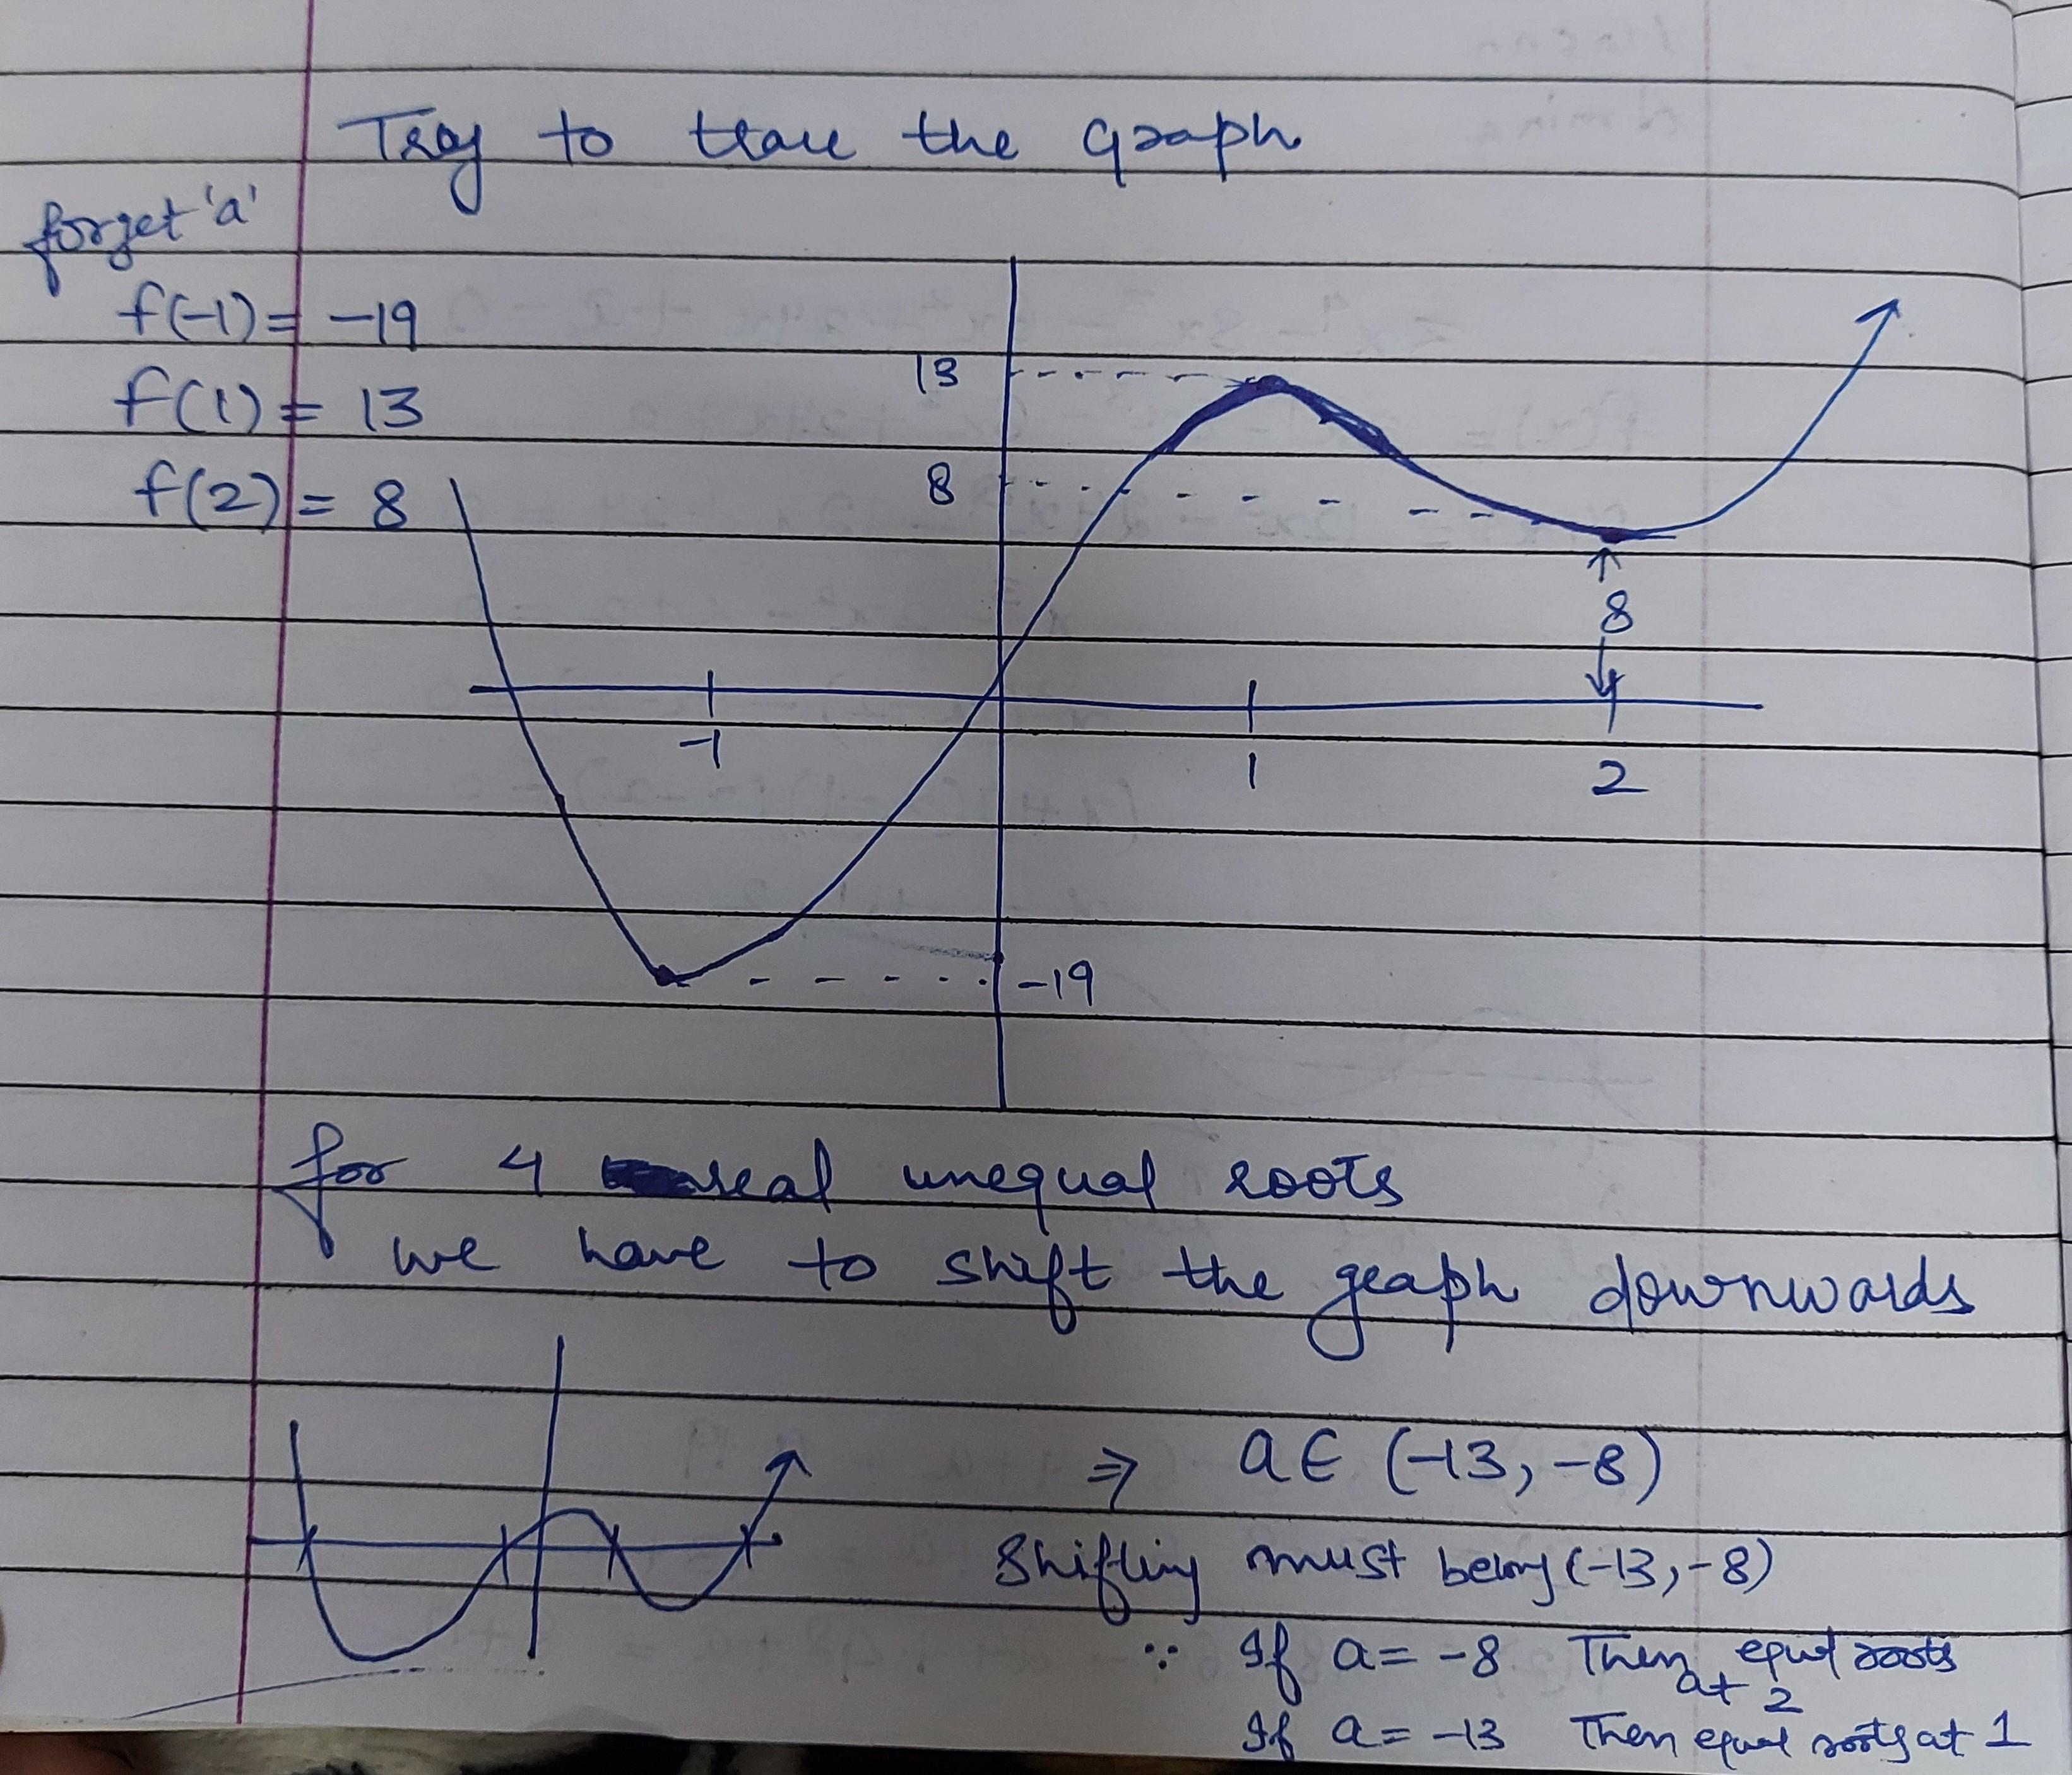 Tray to trace the graph
forget 'a'
f(-1) = -19
f(1) = 13
f(2) = 8
13
8
8
-1
1
2
-19
for 4 real unequal roots
we have to shift the graph downwards
⇒ a ∈ (-13, -8)
Shifting must belong (-13, -8)
∵ If a = -8 Then equal roots at 2
If a = -13 Then equal roots at 1